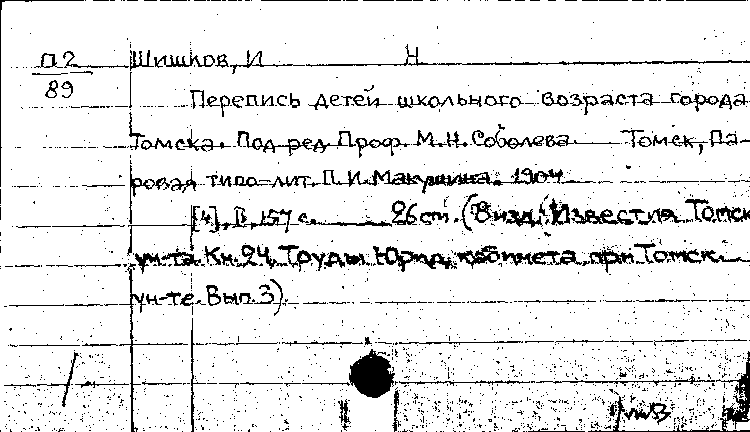 П2
89
Шишков, И Н
Перепись детей школьного возраста города
Томска. Под ред. Проф. М.Н. Соболева. Томск, Па-
ровая типо-лит. П.И. Макушина. 1904
[4], II, 157 с. 26 см. (В изд. Известия Томск
ун-та. Кн. 24. Труды Юрид. кабинета при Томск.
ун-те. Вып. 3).